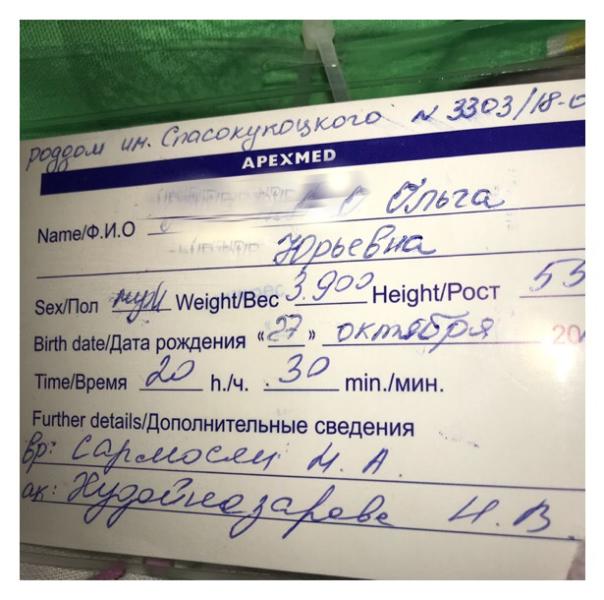 роддом им. Спасокукоцкого N 3303/18-0
APEXMED
Name/Ф.И.О Ольга
Юрьевна
Sex/Пол муж Weight/Вес 3.900 Height/Рост 53
Birth date/Дата рождения «27» октября 20
Time/Время 20 h./ч. 30 min./мин.
Further details/Дополнительные сведения
вр: Сармосян М. А.
ак: Худойназарова Н. В.